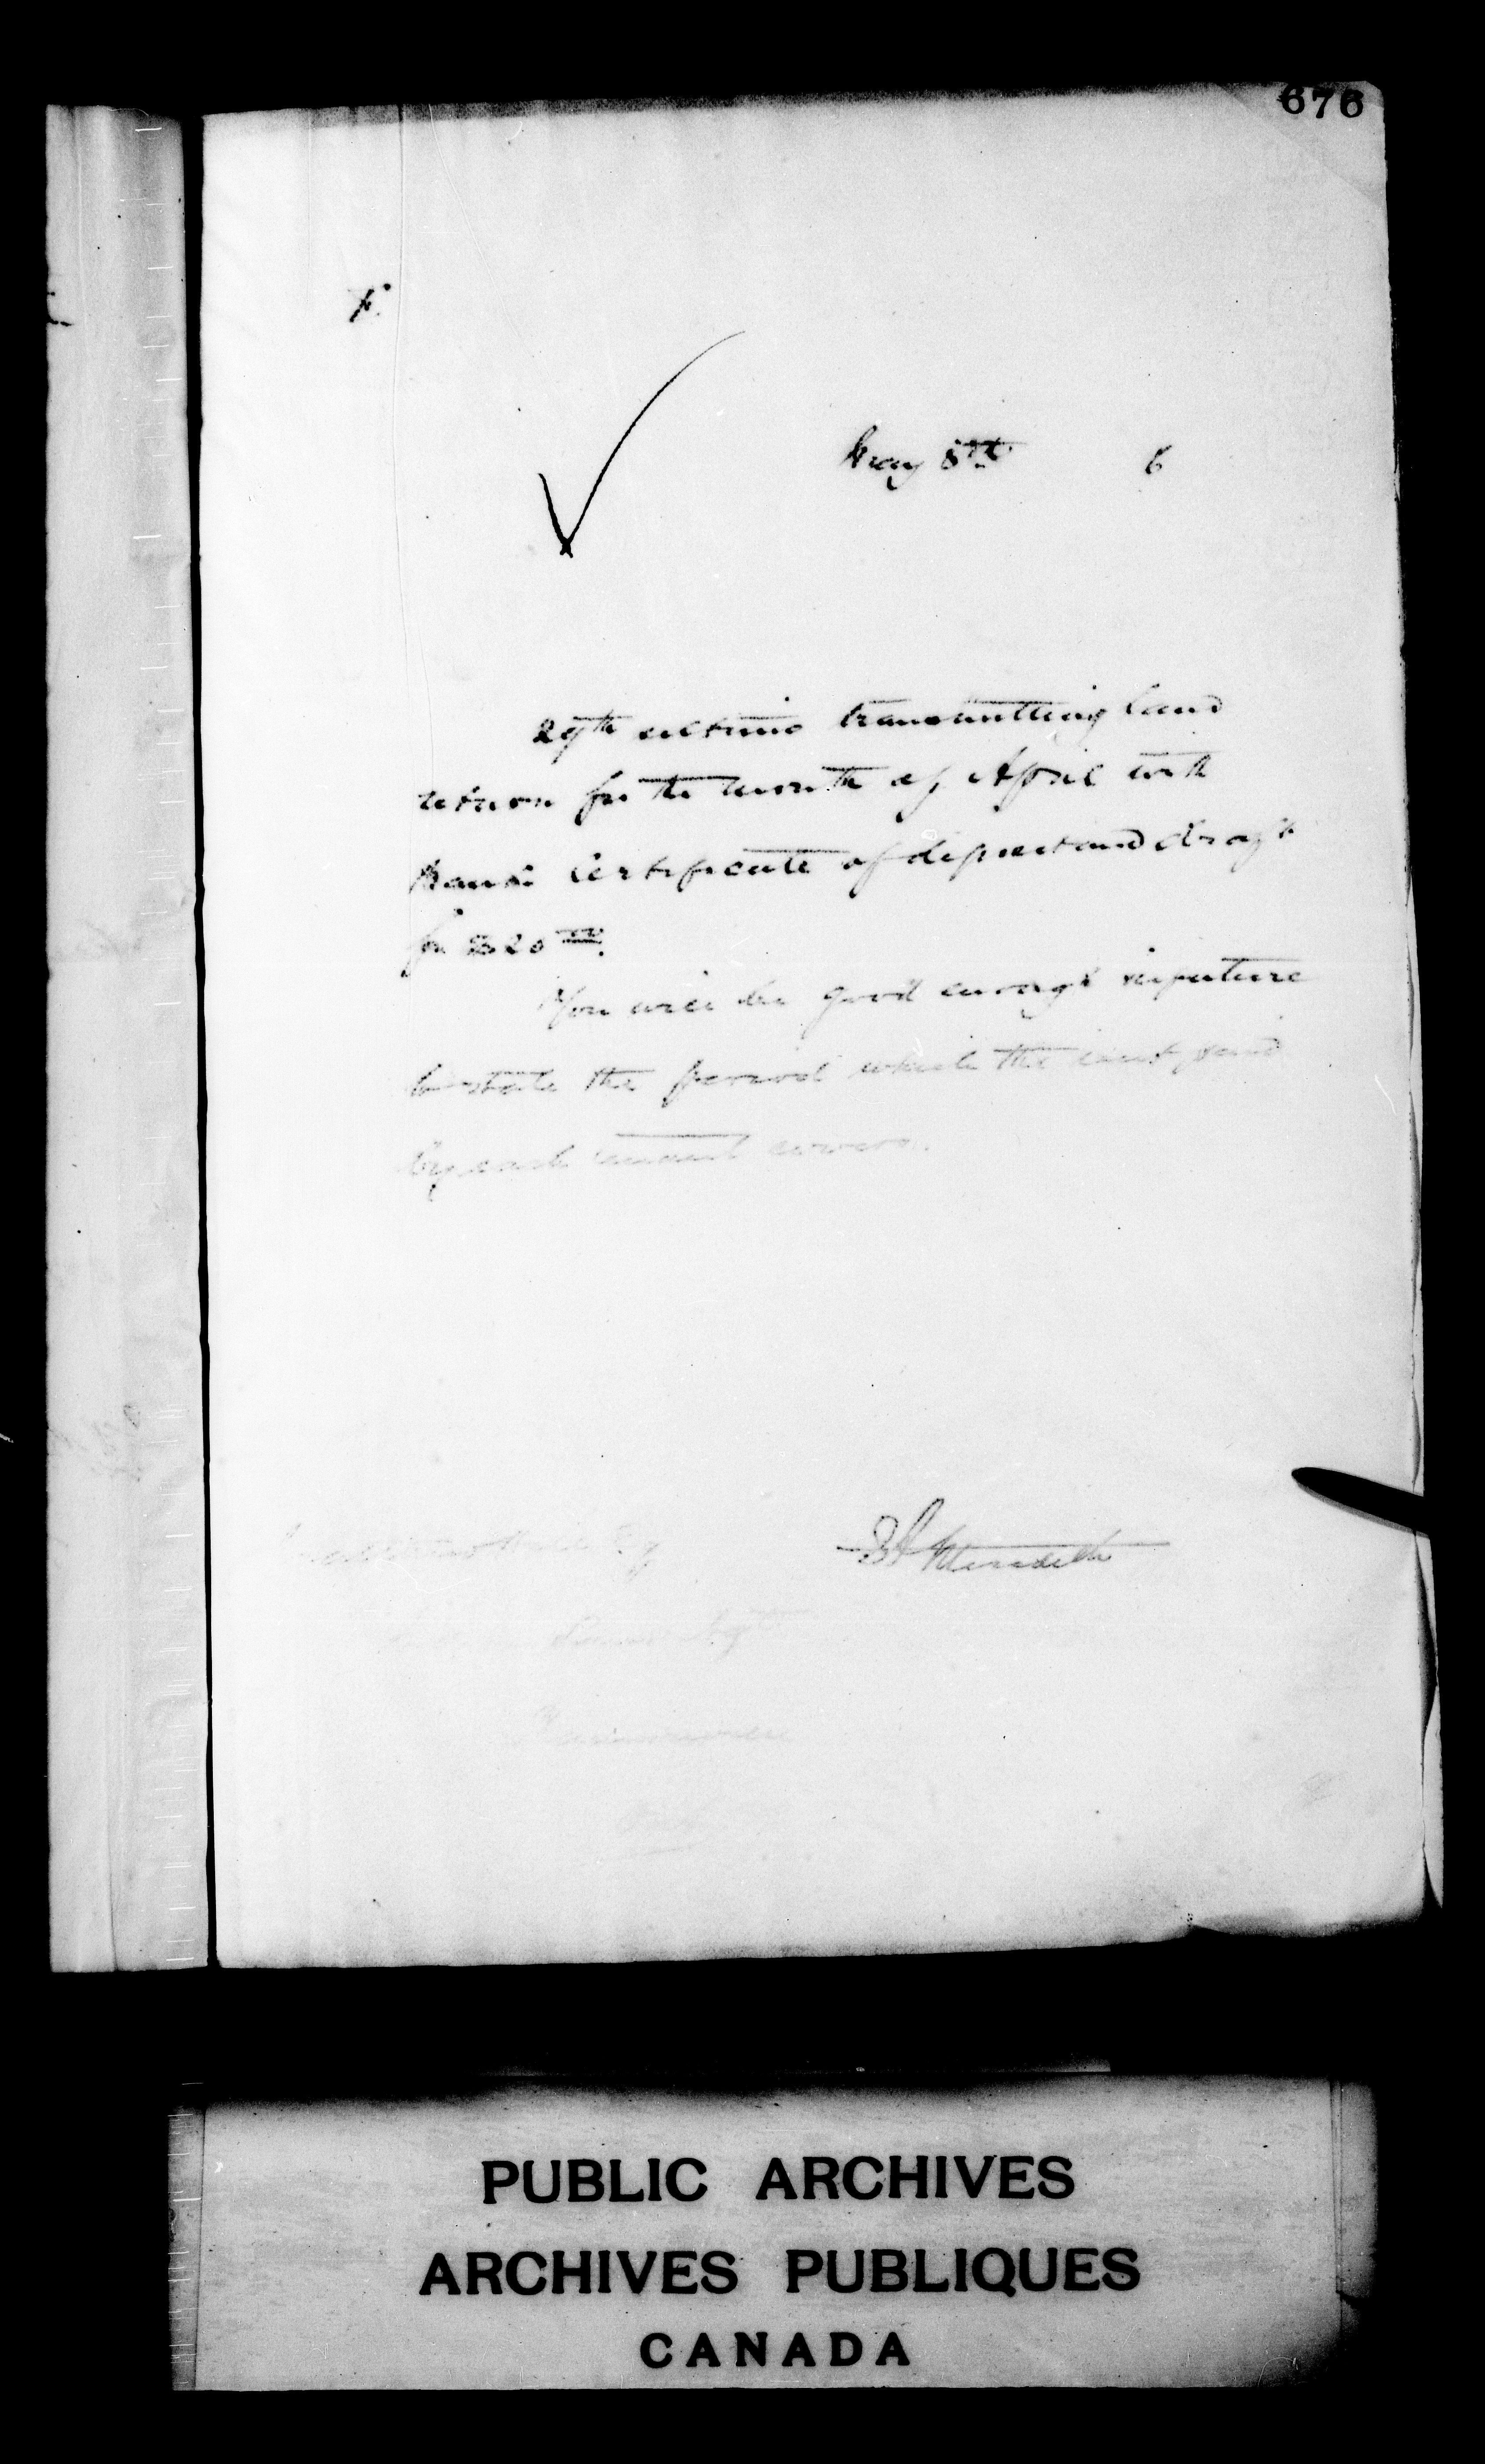 676
F.
May 8th 6
29th ultimo transmitting land
return for the month of April with
Bank Certificate of deposit and draft
for $20
You will be good enough in future
to state the period which the rent paid
by each tenant covers.
EA Meredith
Esq
PUBLIC ARCHIVES
ARCHIVES PUBLIQUES
CANADA